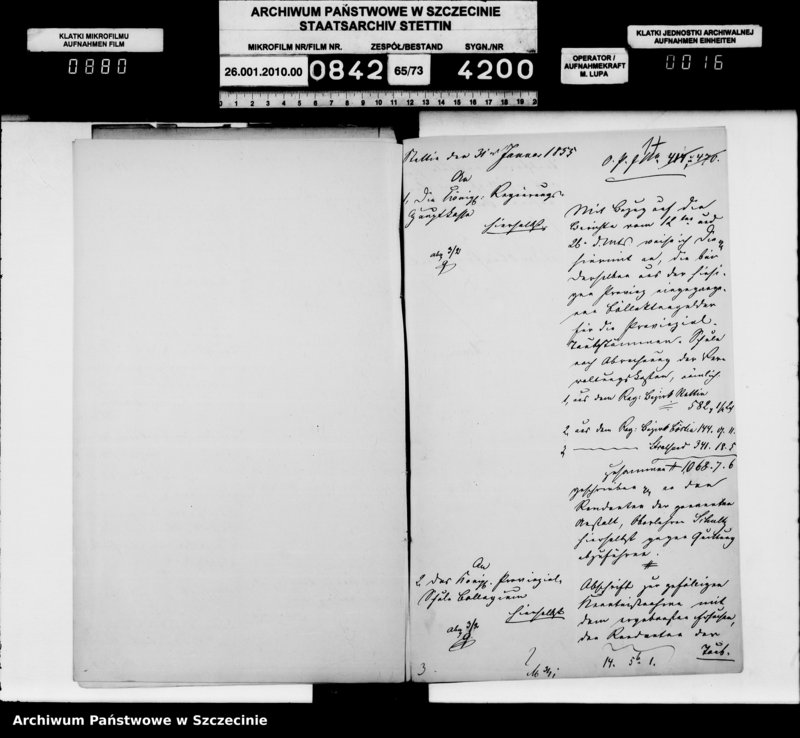 ARCHIWUM PAŃSTWOWE W SZCZECINIE
STAATSARCHIV STETTIN
MIKROFILM NR/FILM NR. ZESPÓŁ/BESTAND SYGN/NR
26.001.2010.00 0842 65/73 4200
0 1 2 3 4 5 6 7 8 9 10 11 12 13 14 15 16 17 18 19 20
KLATKI MIKROFILMU
AUFNAHMEN FILM
0880
OPERATOR /
AUFNAHMEKRAFT
M. LUPA
KLATKI JEDNOSTKI ARCHIWALNEJ
AUFNAHMEN EINHEITEN
0016
Stettin den 31 Januar 1855
An
1, Die Königl. Regierungs-
Hauptkasse
hierselbst
abg 3/2
Mit Bezug auf die
Berichte vom 12 und
26. d. Mts weise ich Die-
hiermit an, die bei
derselben aus der hiesi-
gen Provinz eingegange-
nen Collektengelder
für die Provinzial-
Taubstummen-Schule
nach Abrechnung der Ver-
waltungskosten, nämlich
1, aus dem Reg: Bezirk Stettin
582
2, aus dem Reg: Bezirk Cöslin 144.
3 Stralsund 341. 18. 5
zusammen 1068. 7. 6
geschrieben an den
Rendanten der genannten
Anstalt, Oberlehrer Schultz
hierselbst gegen Quittung
abzuführen.
An
2, das Königl. Provinzial-
Schul Collegium
hierselbst
abg 3/2
Abschrift zur gefälligen
Kenntnißnahme mit
dem ergebensten Ersuchen,
den Rendanten der
Taub-
14. 5. 1.
3
Archiwum Państwowe w Szczecinie